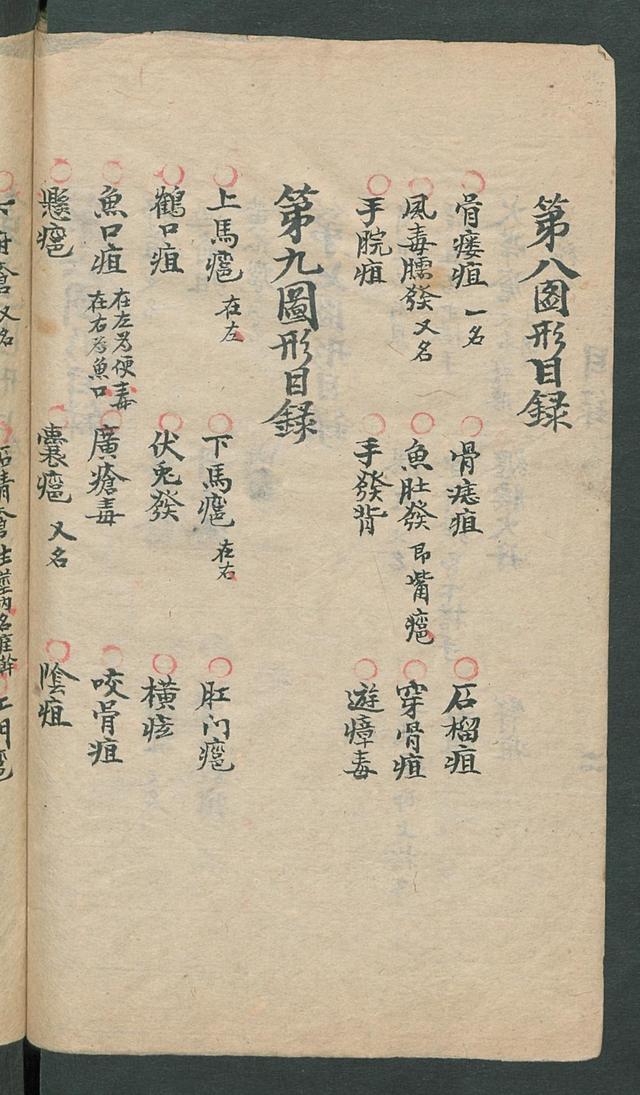 第八圖形目録
骨瘻疽 一名 骨痣疽 石榴疽
風毒臑發 又名 魚肚發 即嘴癰 穿骨疽
手腕疽 手發背 遊瘴毒
第九圖形目録
上馬癰 在左 下馬癰 在右 肛门癰
鶴口疽 伏兎發 橫痃
魚口疽 在左為便毒 在右為魚口 廣瘡毒 咬骨疽
懸癰 囊癰 又名 陰疽
又名